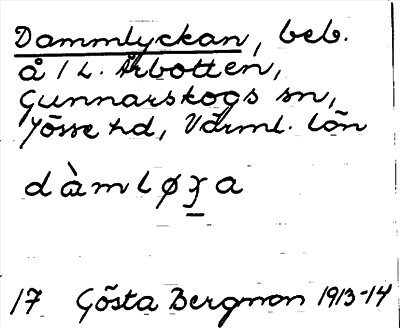 Dammlyckan, beb.
å 1 L. Årbotten,
Gunnarskogs sn,
Jösse hd, Värml. län
dàmløʒ̱a
17 Gösta Bergman 1913-14